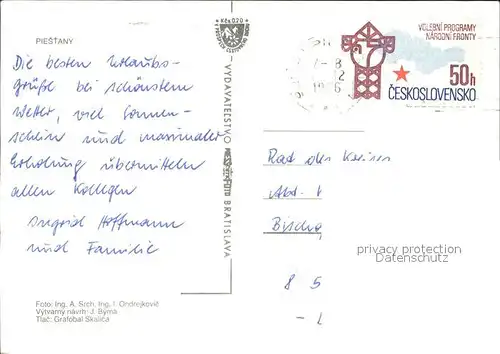 PIEŠŤANY
Die besten Urlaubs-
grüße bei schönstem
Wetter, viel Sonnen-
schein und maximaler
Erholung übermitteln
allen Kollegen
Ingrid Hoffmann
und Familie
Foto: Ing. A. Srch, Ing. I. Ondrejkovič
Výtvarný návrh: J. Býma
Tlač: Grafobal Skalica
Kčs 0,20
VYDAVATEĽSTVO
BRATISLAVA
VOLEBNÍ PROGRAMY
NÁRODNÍ FRONTY
50h
ČESKOSLOVENSKO
Rat des Kreises
Abt.
Bischo
8 5
privacy protection
Datenschutz